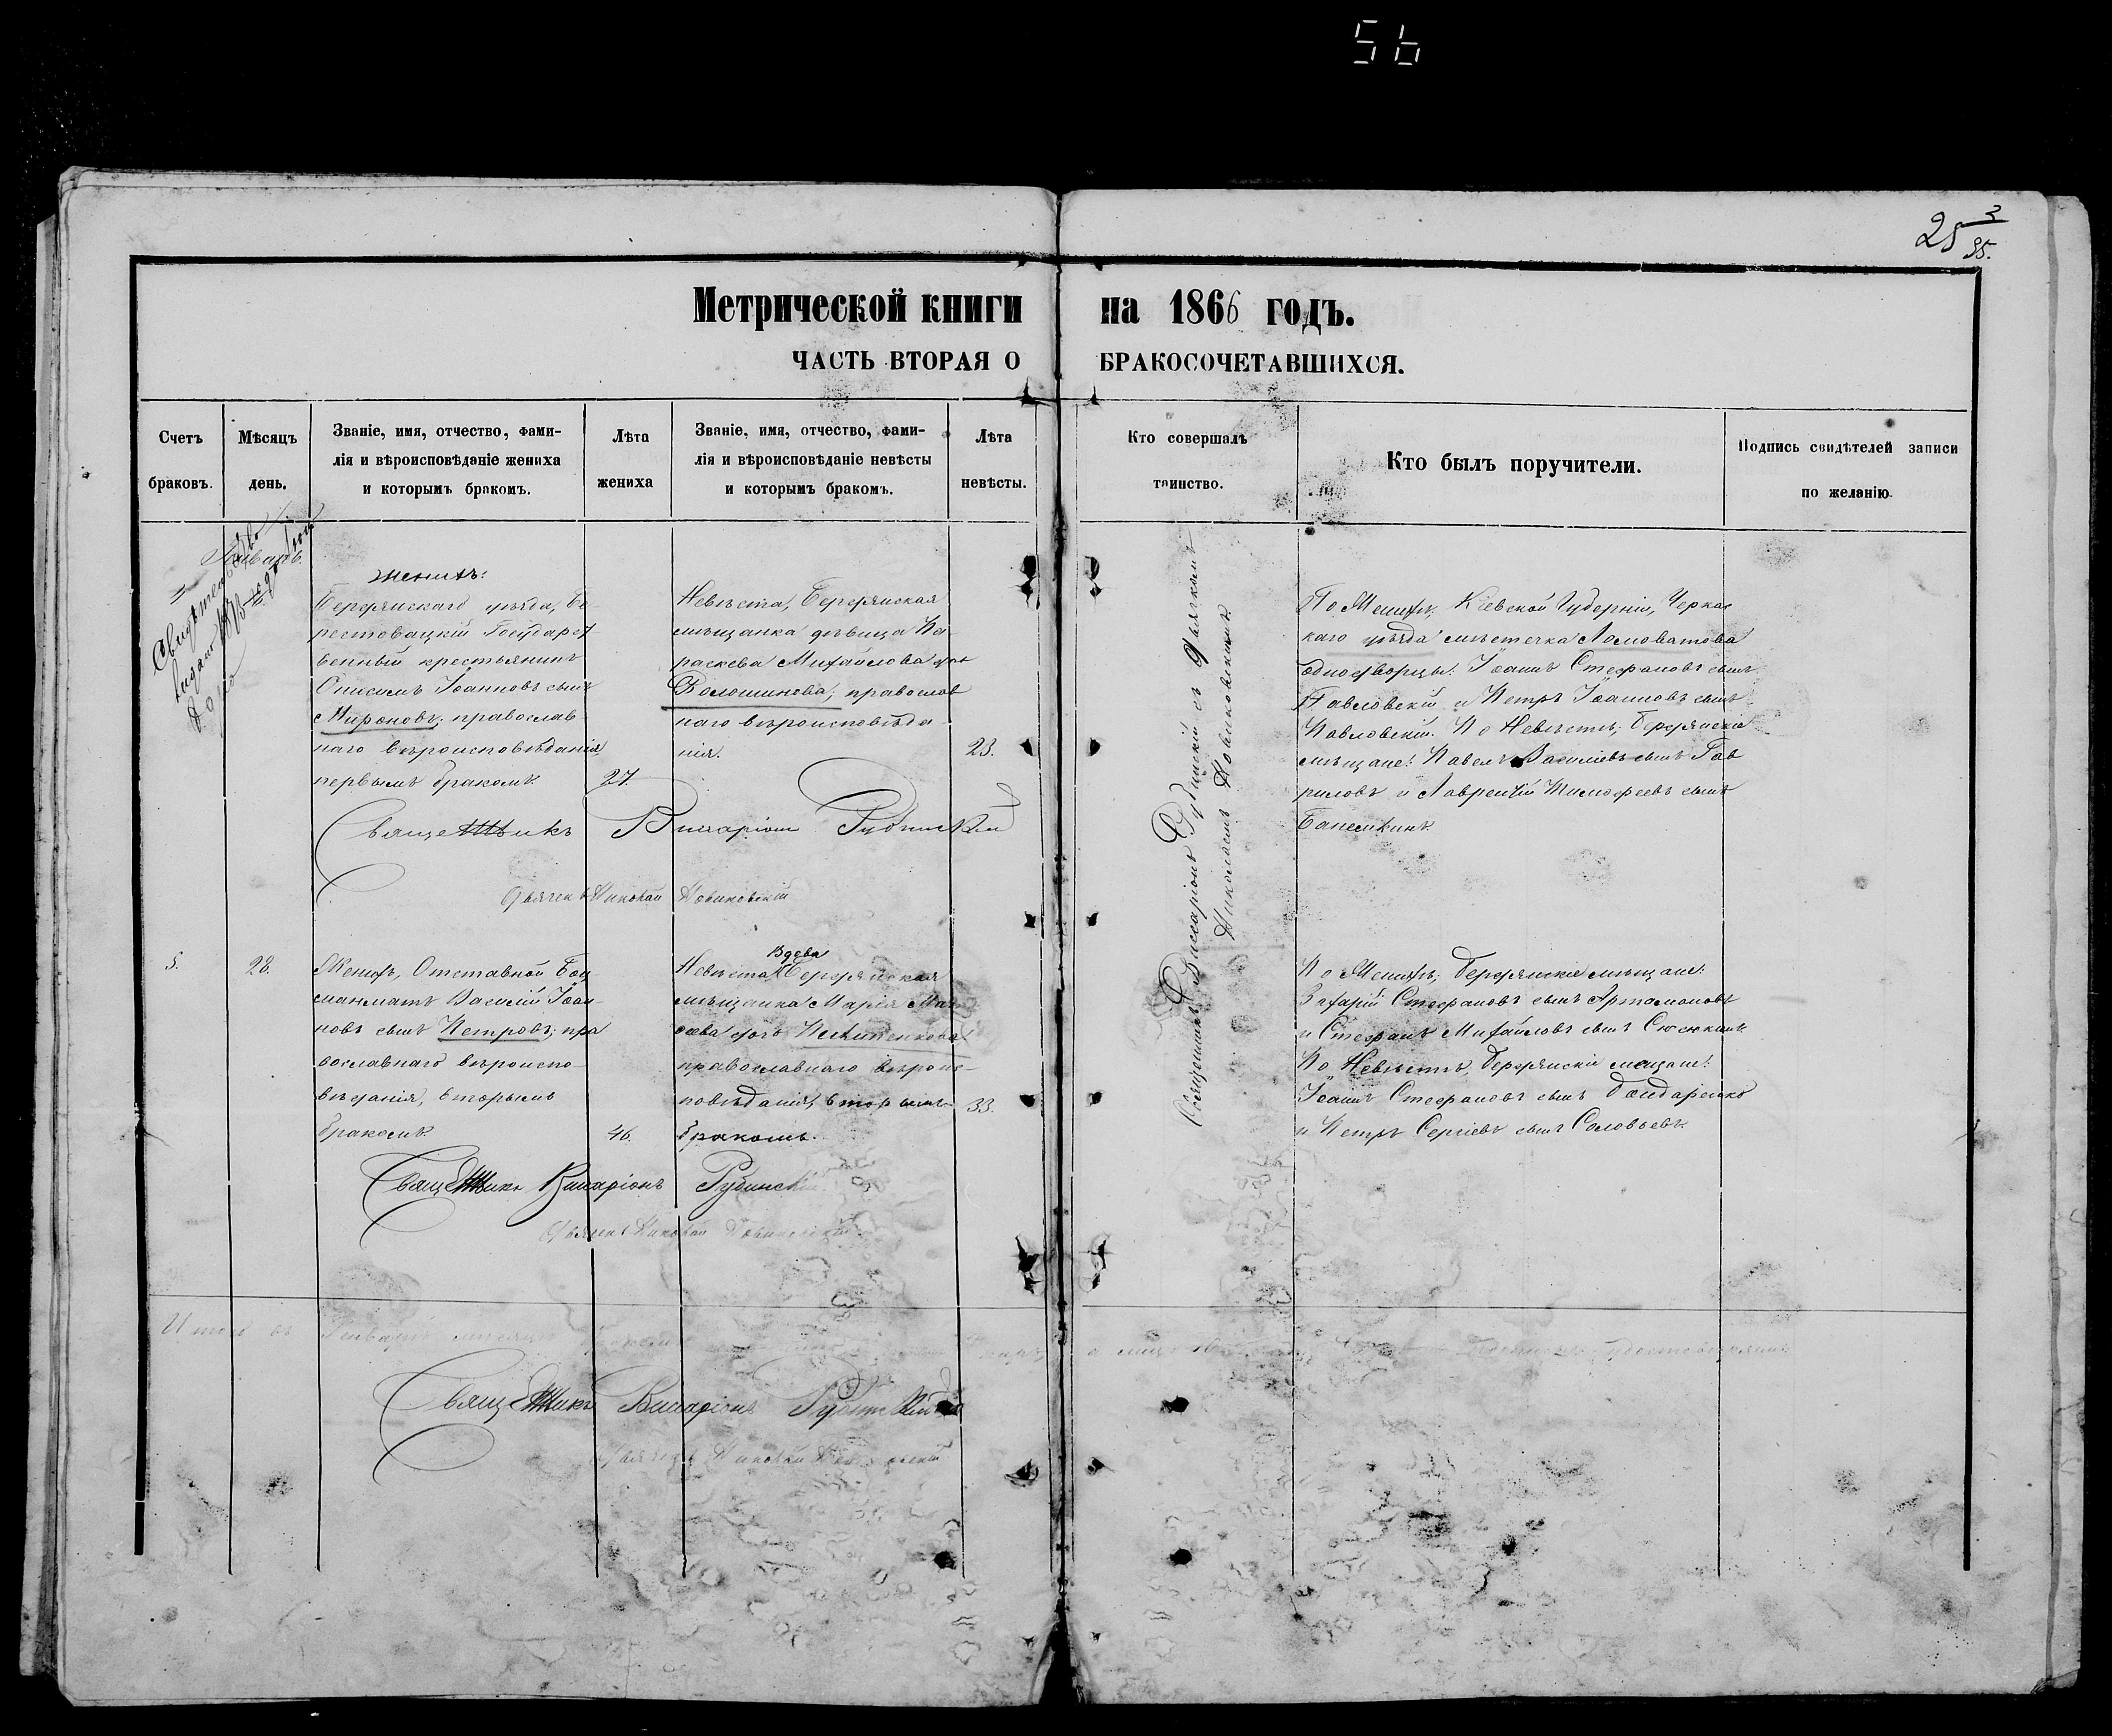 56
25 2/35.
Метрической книги на 1866 годъ.
ЧАСТЬ ВТОРАЯ О БРАКОСОЧЕТАВШИХСЯ.
Счетъ браковъ.
Мѣсяцъ день.
Званіе, имя, отчество, фами-
лія и вѣроисповѣданіе жениха
и которымъ бракомъ.
Лѣта жениха
Званіе, имя, отчество, фами-
лія и вѣроисповѣданіе невѣсты
и которымъ бракомъ.
Лѣта невѣсты.
Кто совершалъ таинство.
Кто былъ поручители.
Подпись свидѣтелей записи
по желанію.
Январь.
Женихъ:
Бердянскаго уѣзда, Бе-
рестовацкій Государст
венный крестьянинъ
Онисимъ Іоанновъ сынъ
Мироновъ; православ
наго вѣроисповѣданія,
первымъ бракомъ.
27.
Невѣста, Бердянская
мѣщанка дѣвица Па
раскева Михайлова дочь
Волошинова; православ
наго вѣроисповѣда
нія.
23.
Священникъ Виссаріонъ Рубинскій
Дьячекъ Николай Новиковскій
Священникъ Виссаріонъ Рубинскій съ Дьячкомъ
Николаемъ Новиковскимъ.
По Женихѣ, Кіевской Губерніи, Черкас
каго уѣзда мѣстечка Ломоватова
однодворцы: Іоаннъ Стефановъ сынъ
Павловскій и Петръ Іоанновъ сынъ
Павловскій. По Невѣстѣ; Бердянскіе
мѣщане: Павелъ Васиіевъ сынъ Гав
риловъ и Лаврентій Тимофеевъ сынъ
5.
28.
Женихъ, Отставной Боц
манматъ Василій Іоан-
новъ сынъ Петровъ; пра
вославнаго вѣроиспо-
вѣданія, вторымъ
бракомъ.
46.
Вдова
Невѣста, Бердянская
мѣщанка Марія
дочь
православнаго вѣроис-
повѣданія, вторымъ
бракомъ.
33.
По Женихѣ; Бердянскіе мѣщане:
Захарій Стефановъ сынъ Артамоновъ
и Стефанъ Михайловъ сынъ Сюсюкинъ
По Невѣстѣ, Бердянскіе мещане:
Іоаннъ Стефановъ сынъ Бондаренко
и Петръ Сергіевъ сынъ Соловьевъ.
Священникъ Виссаріонъ Рубинскій
Дьячекъ Николай Новиковскій
Итого въ Январѣ мѣсяцѣ
Священникъ Виссаріонъ Рубинскій
Дьячекъ Николай Новиковскій